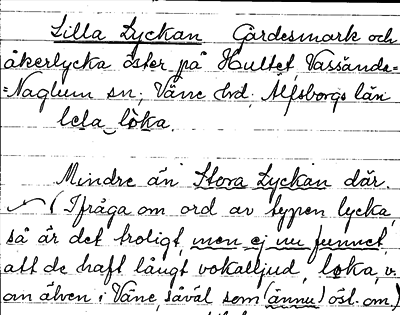 Lilla Lyckan Gärdesmark och
åkerlycka öster på Hultet, Vassända-
=Naglum sn; Väne hd; Älfsborgs län
lela loka.
Mindre än Stora Lyckan där.
(Ifråga om ord av typen lycka,
så är det troligt, men ej nu funnet,
att de haft långt vokalljud, loka, v.
om älven i Väne, såväl som (ännu) östl. om,)